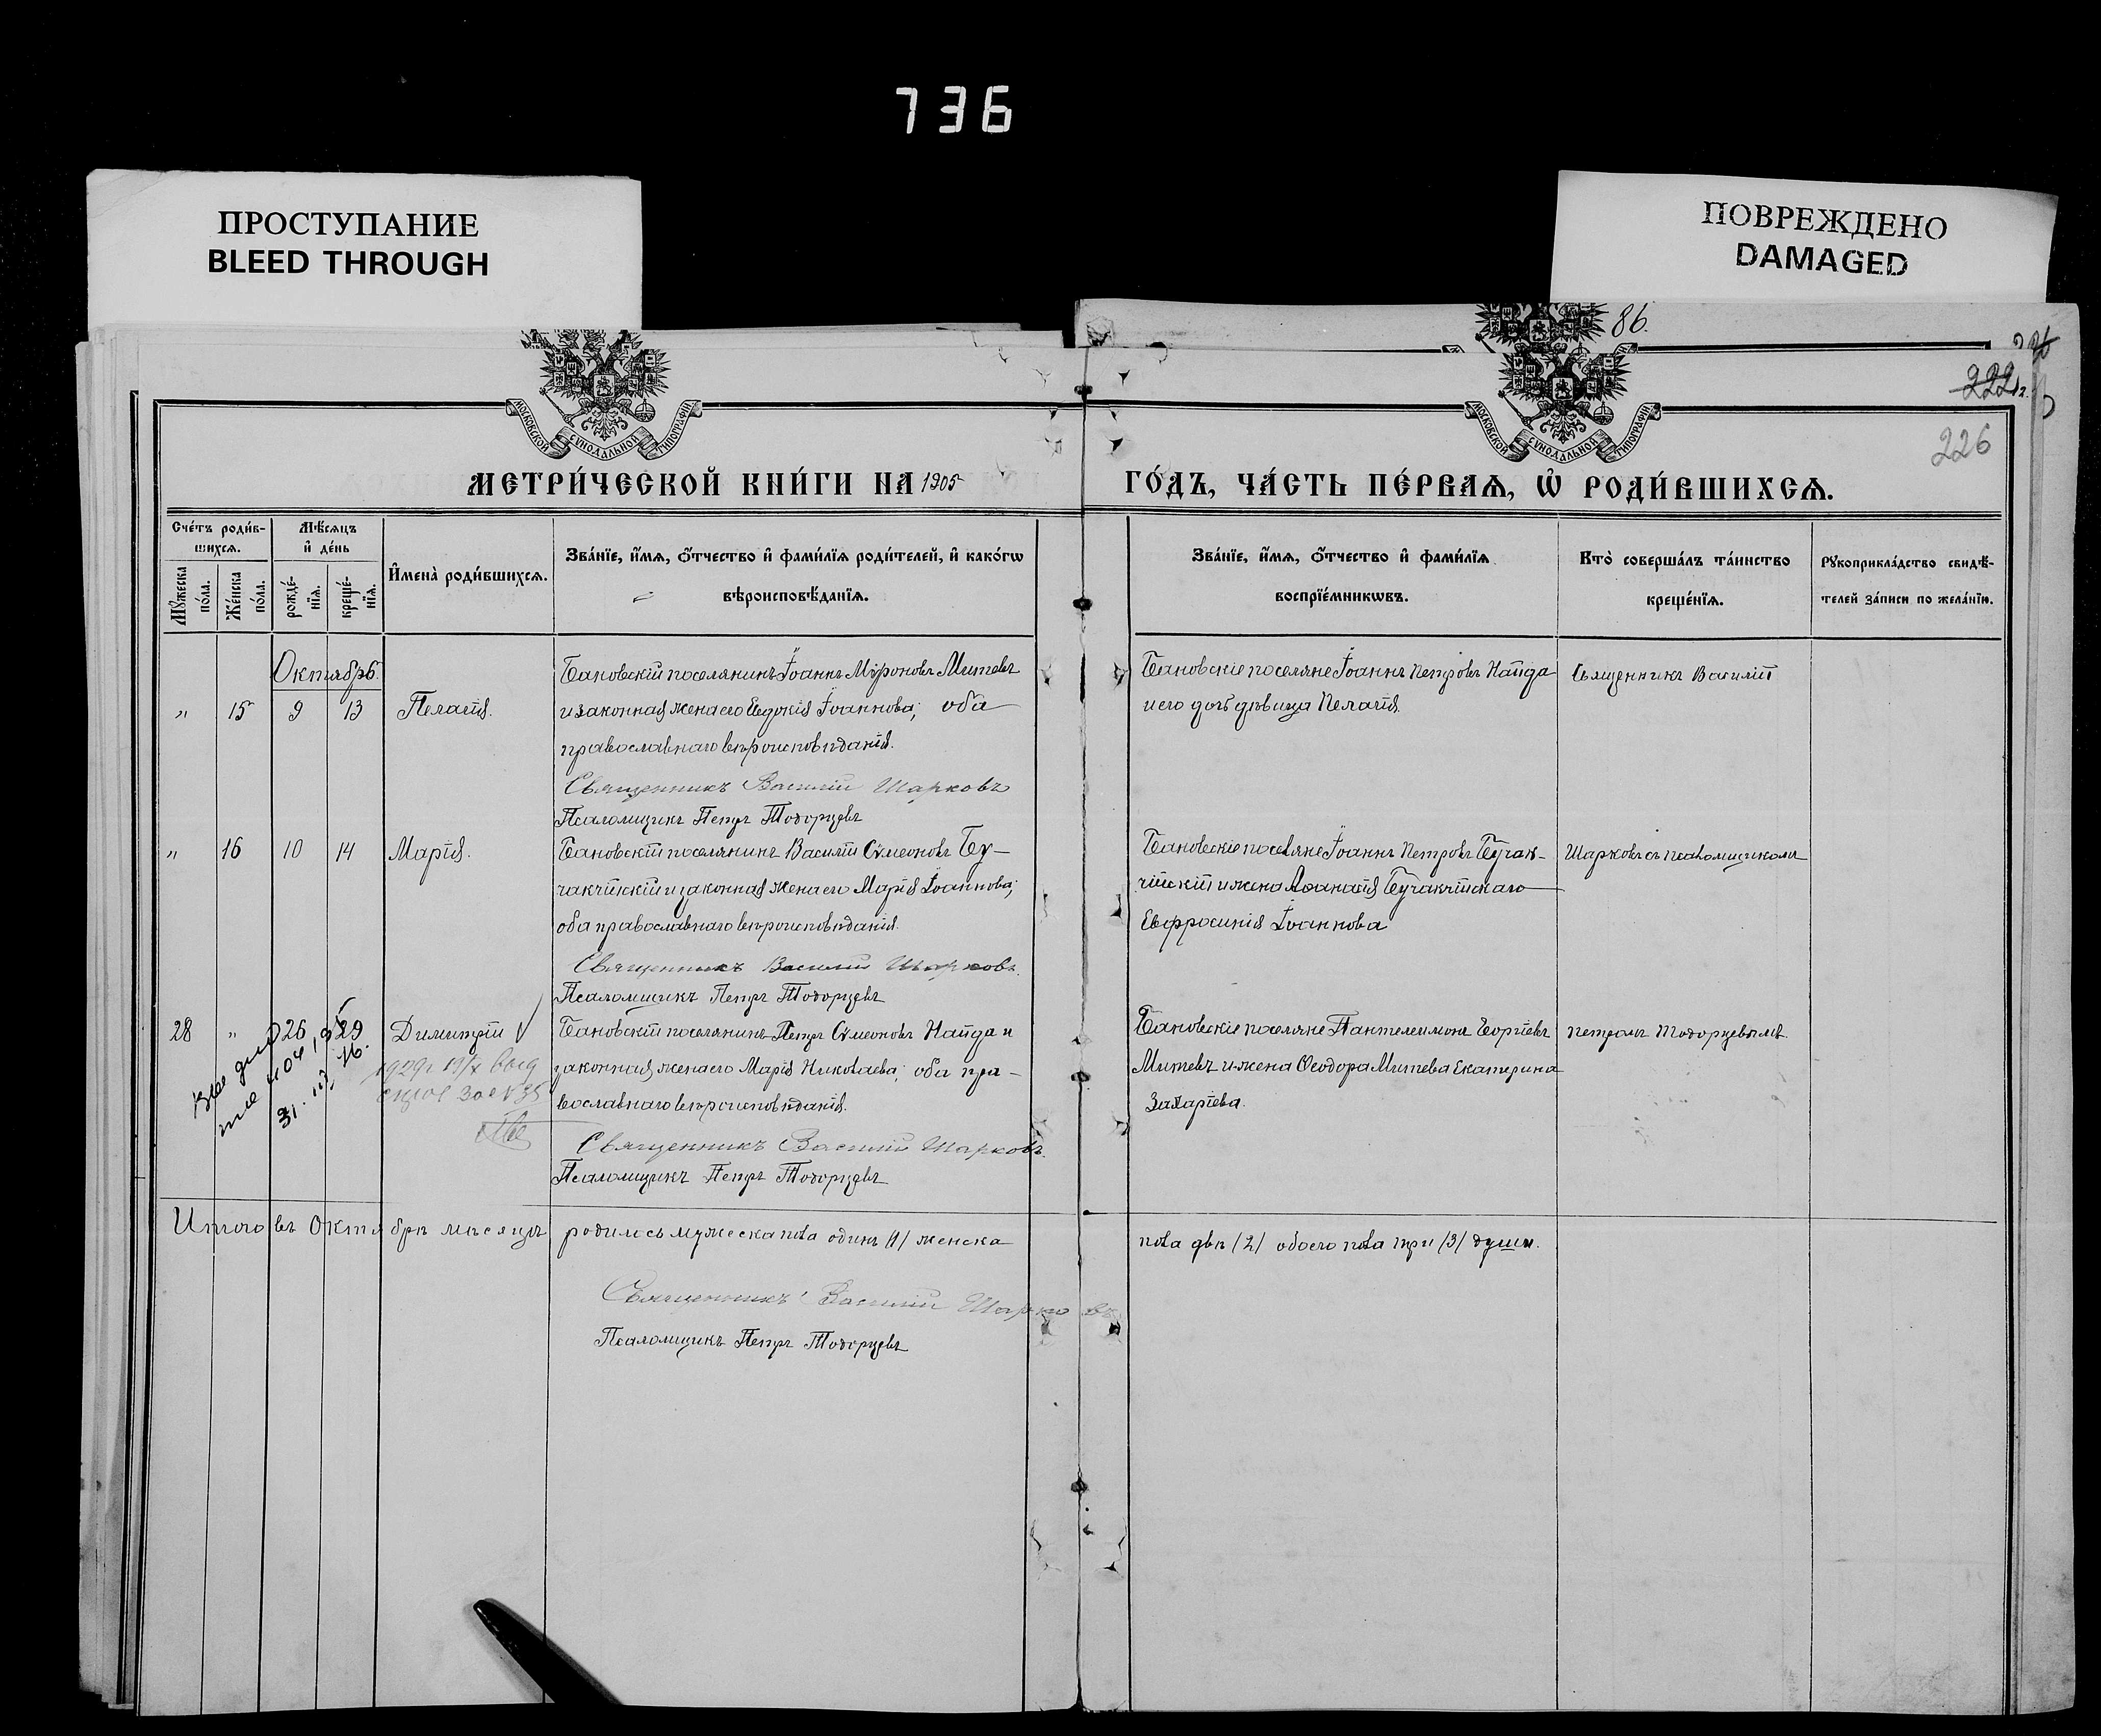 736
ПРОСТУПАНИЕ
BLEED THROUGH
ПОВРЕЖДЕНО
DAMAGED
86.
222
226
МОСКОВСКОЙ СѴНОДАЛЬНОЙ ТИПОГРАФІИ
МОСКОВСКОЙ СѴНОДАЛЬНОЙ ТИПОГРАФІИ
МЕТРИ́ЧЕСКОЙ КНИ́ГИ НА 1905 ГО́ДЪ, ЧА́СТЬ ПЕ́РВАѦ, Ѡ҆ РОДИ́ВШИХСѦ.
Сче́тъ роди́в-
шихсѧ.
Мꙋ́жеска по́ла.
Же́нска по́ла.
Мѣ́сяцъ
и҆ де́нь
рожде́-
нїѧ.
креще́-
нїѧ.
И҆мена̀ роди́вшихсѧ.
Зва́нїе, и҆́мѧ, ѻ҆́тчество и҆ фами́лїѧ роди́телей, и҆ како́гѡ
вѣроисповѣ́данїѧ.
Зва́нїе, и҆́мѧ, ѻ҆́тчество и҆ фами́лїѧ
воспрїе́мникѡвъ.
Кто̀ соверша́лъ та́инство
креще́нїѧ.
Рꙋкоприкла́дство свидѣ́-
телей за́писи по жела́нїю.
Октябрь.
" 15 9 13 Пелагія.
Бановскій поселянинъ Іоаннъ Мѵроновъ Митевъ
и законная жена его Евдокія Іоаннова; оба
православнаго вѣроисповѣданія.
Священникъ Василій Шарковъ
Псаломщикъ Петръ Тодорцевъ
Бановскіе поселяне Іоаннъ Петровъ Найда
и его дочь дѣвица Пелагія.
Священникъ Василій
" 16 10 14 Марія.
Бановскій поселянинъ Василій Сѵмеоновъ Бу-
чакчійскій и законная жена его Марія Іоаннова;
оба православнаго вѣроисповѣданія.
Священникъ Василій Шарковъ.
Псаломщикъ Петръ Тодорцевъ
Бановскіе поселяне Іоаннъ Петровъ Бучак-
чійскій и жена Аѳанасія Бучакчійскаго
Евфросинія Іоаннова
Шарковъ съ псаломщикомъ
28 " 26 29 Димитрій
Бановскій поселянинъ Петръ Сѵмеоновъ Найда и
законная жена его Марія Николаева; оба пра-
вославнаго вѣроисповѣданія.
Священникъ Василій Шарковъ.
Псаломщикъ Петръ Тодорцевъ
Бановскіе поселяне Пантелеимонъ Георгіевъ
Митевъ и жена Ѳеодора Митева Екатерина
Захаріева.
Петромъ Тодорцевымъ.
1929г 19/X выд
Итого въ Октябрѣ мѣсяцѣ родилось мужеска пола одинъ /1/ женска пола двѣ /2/ обоего пола три /3/ души.
Священникъ Василій Шарковъ
Псаломщикъ Петръ Тодорцевъ